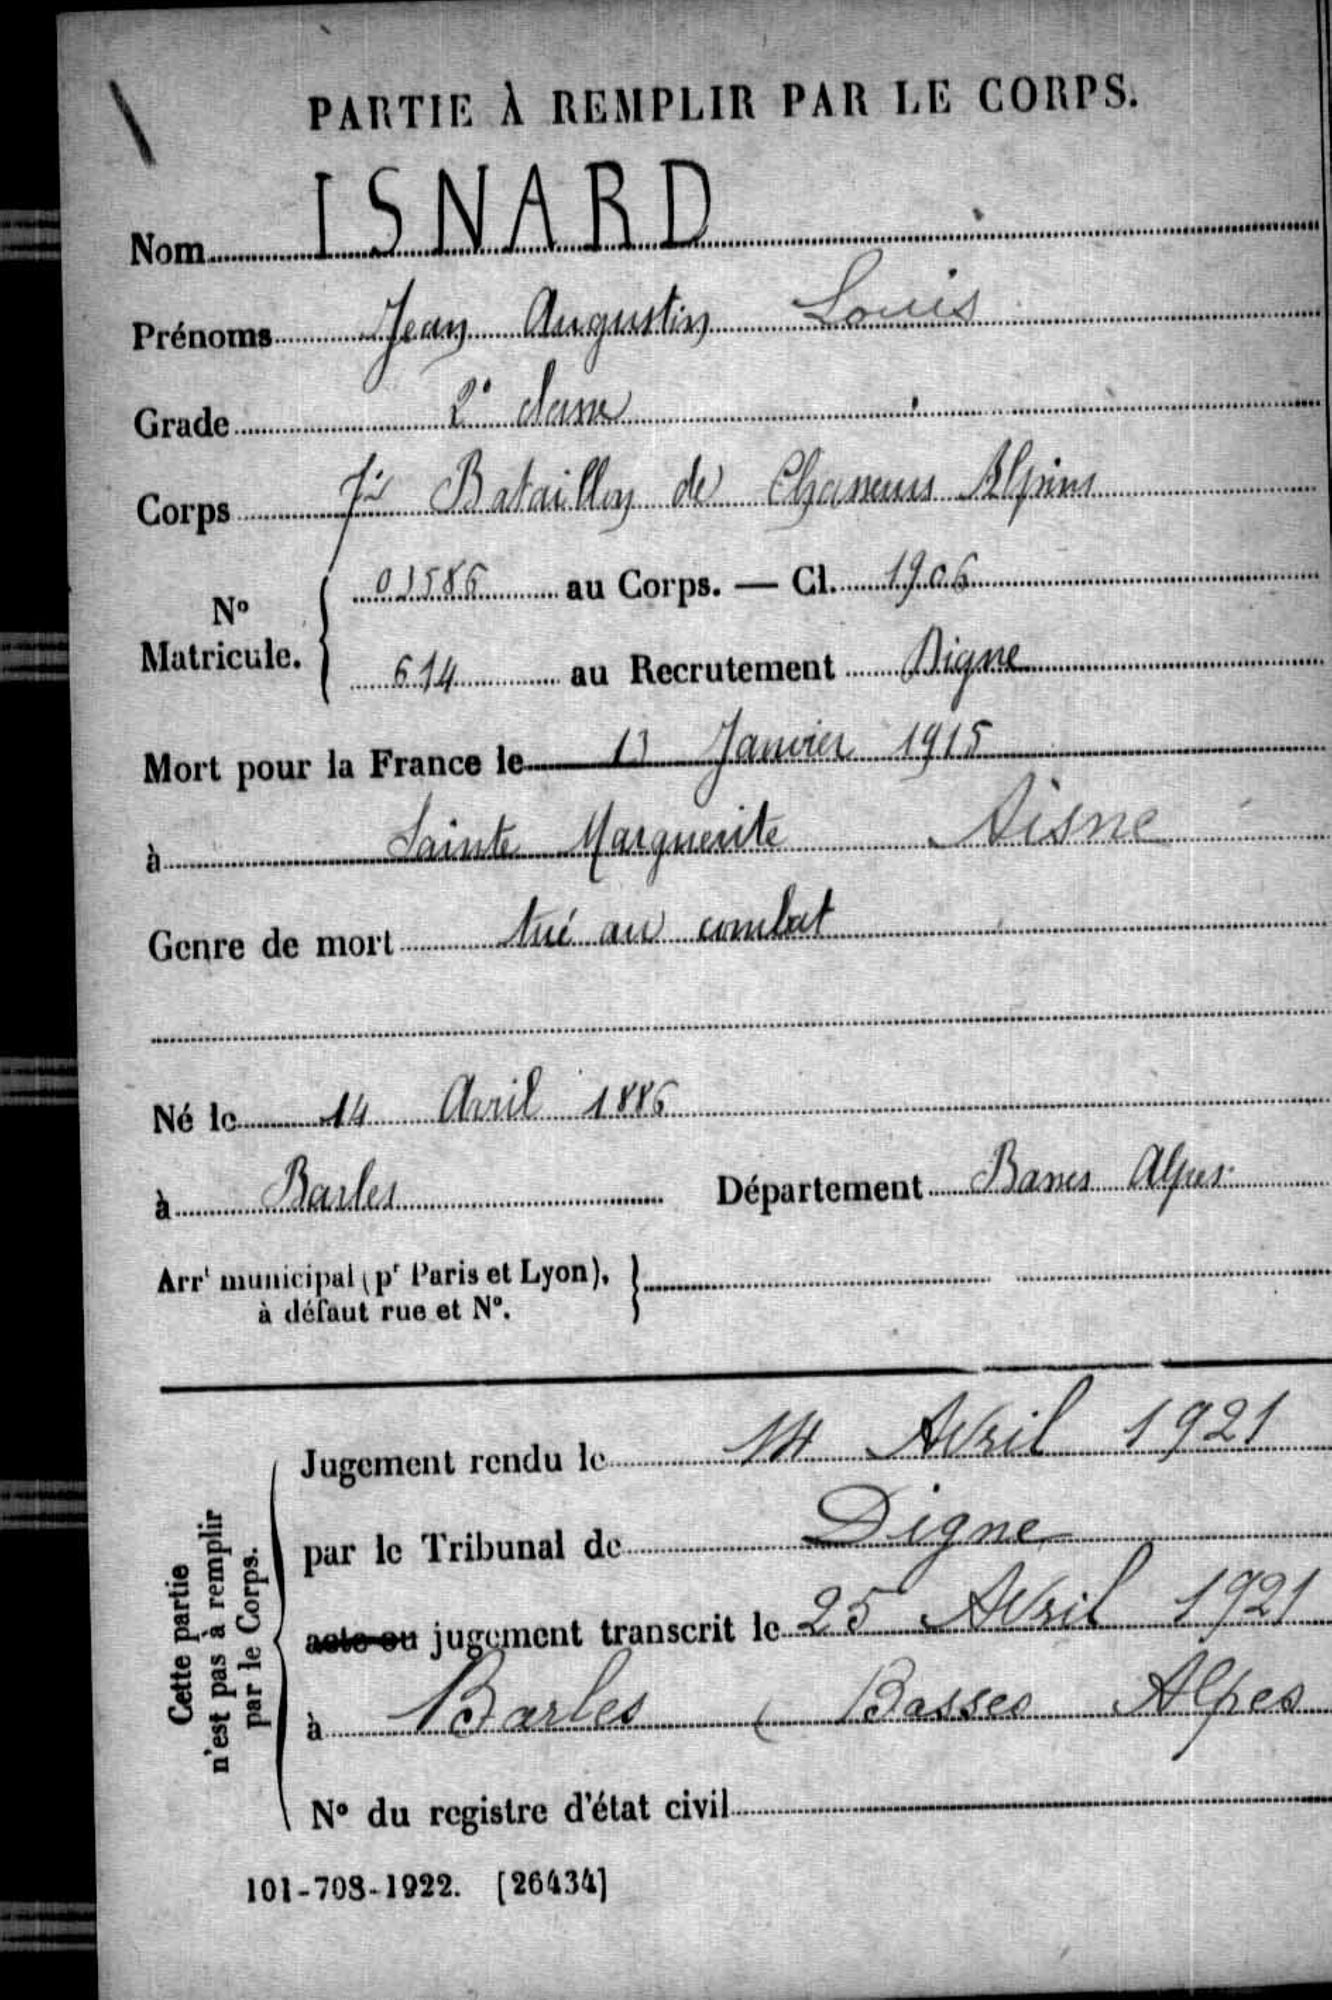 PARTIE À REMPLIR PAR LE CORPS.
Nom ISNARD
Prénoms Jean Augustin Louis
Grade 2e classe
Corps 7e Bataillon de Chasseurs Alpins
No Matricule. { 01586 au Corps. — Cl. 1906
614 au Recrutement Digne
Mort pour la France le 13 Janvier 1915
à Sainte Marguerite Aisne
Genre de mort tué au combat
Né le 14 Avril 1886
à Barles Département Basses Alpes
Arrt municipal (pr Paris et Lyon), }
à défaut rue et No.
Cette partie
n'est pas à remplir
par le Corps.
Jugement rendu le 14 Avril 1921
par le Tribunal de Digne
acte ou jugement transcrit le 25 Avril 1921
à Barles ( Basses Alpes
No du registre d'état civil
101-708-1922. [26434]